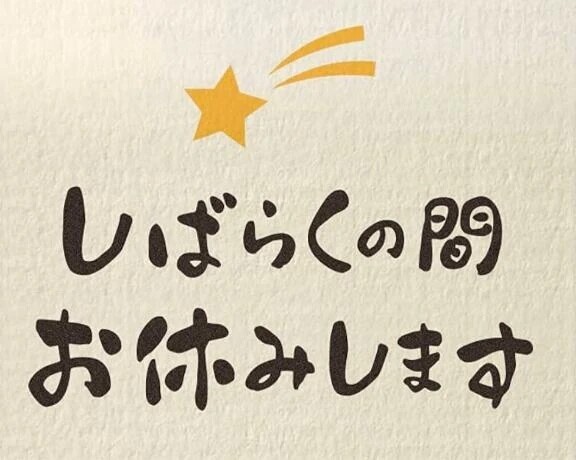 しばらくの間
お休みします